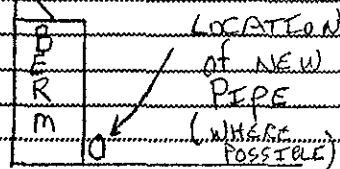 BERM
LOCATION
of NEW
PIPE
(WHERE
POSSIBLE)